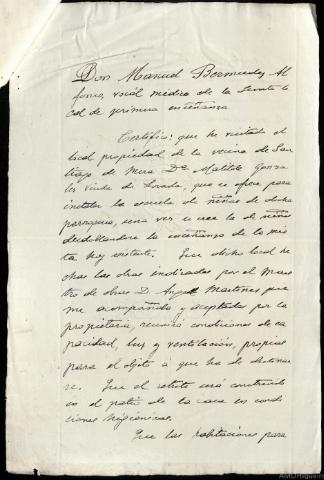 Don Manuel Bermudez Al
fonso, vocal médico de la Junta lo
cal de primera enseñanza
Certifico: que he visitado el
local propiedad de la vecina de San
tiago de Mera Dª Matilde Gonza
lez viuda de Losada, que se ofrece para
instalar la escuela de niñas de dicha
parroquia, una vez se cree la de niños
desdoblandose la enseñanza de la mix
ta hoy existente. Que dicho local he
chas las obras indicadas por el Maes
tro de obras D. Angel Martinez que
me acompañaba y aceptadas por la
propietaria, reunirá condiciones de ca
pacidad, luz y ventilación, propias
para el objeto á que ha de destinar
se. Que el retrete será construido
en el patio de la casa en condi
ciones higienicas.
Que las habitaciones para